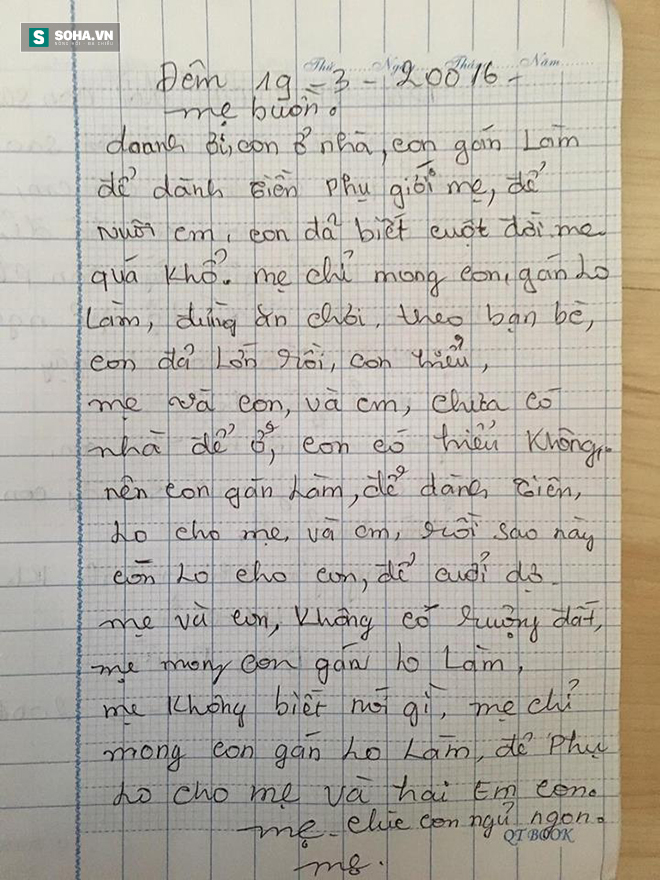 SOHA.VN
Thứ Ngày Tháng Năm
Đêm 19-3-20016-
mẹ buồn.
daanh ơi, con ở nhà, con gán Làm
để dành tiền phụ giới mẹ, để
nuôi em, con đả biết cuột đời mẹ
quá khổ. mẹ chỉ mong con, gán Lo
Làm, đừng ăn chơi, theo bạn bè,
con đả Lớn rồi, con hiểu,
mẹ và con, và em, chưa có
nhà để ở, con có hiểu không,
nên con gán Làm, để dành tiền,
Lo cho mẹ, và em, rồi sao này
còn Lo cho con, để cưới dợ.
mẹ và con, không có ruộng đất,
mẹ mong con gán Lo Làm,
mẹ không biết nói gì, mẹ chỉ
mong con gán Lo Làm, để phụ
Lo cho mẹ và hai Em con.
mẹ chúc con ngủ ngon.
QT BOOK
mẹ.